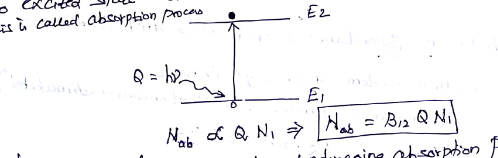 to excited state
is is called absorption process
E2
Q = hν
E1
Nab ∝ Q N1 ⇒ Nab = B12 Q N1
inducing absorption